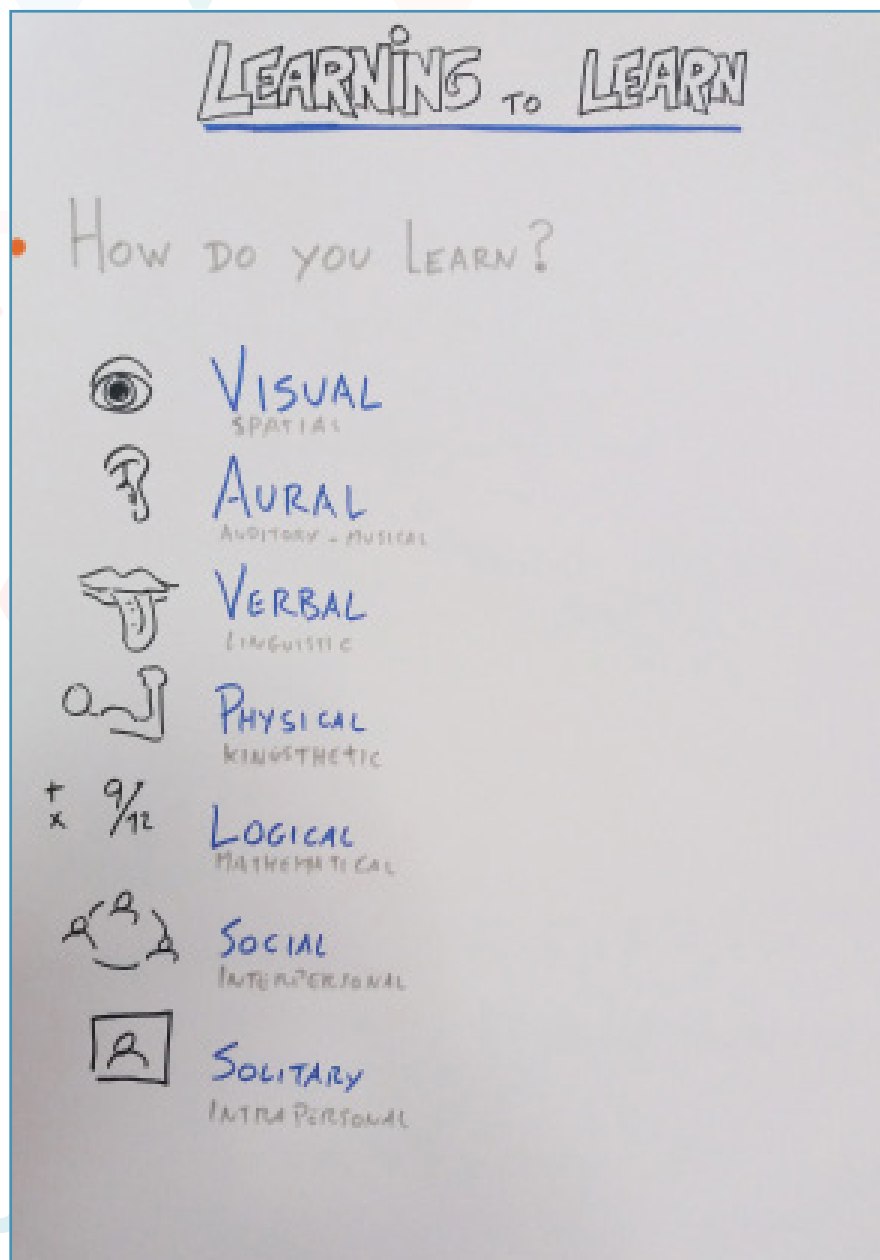 LEARNING TO LEARN
HOW DO YOU LEARN?
VISUAL
SPATIAL
AURAL
AUDITORY - MUSICAL
VERBAL
LINGUISTIC
PHYSICAL
KINESTHETIC
+
x 9/12
LOGICAL
MATHEMATICAL
SOCIAL
INTERPERSONAL
SOLITARY
INTRAPERSONAL